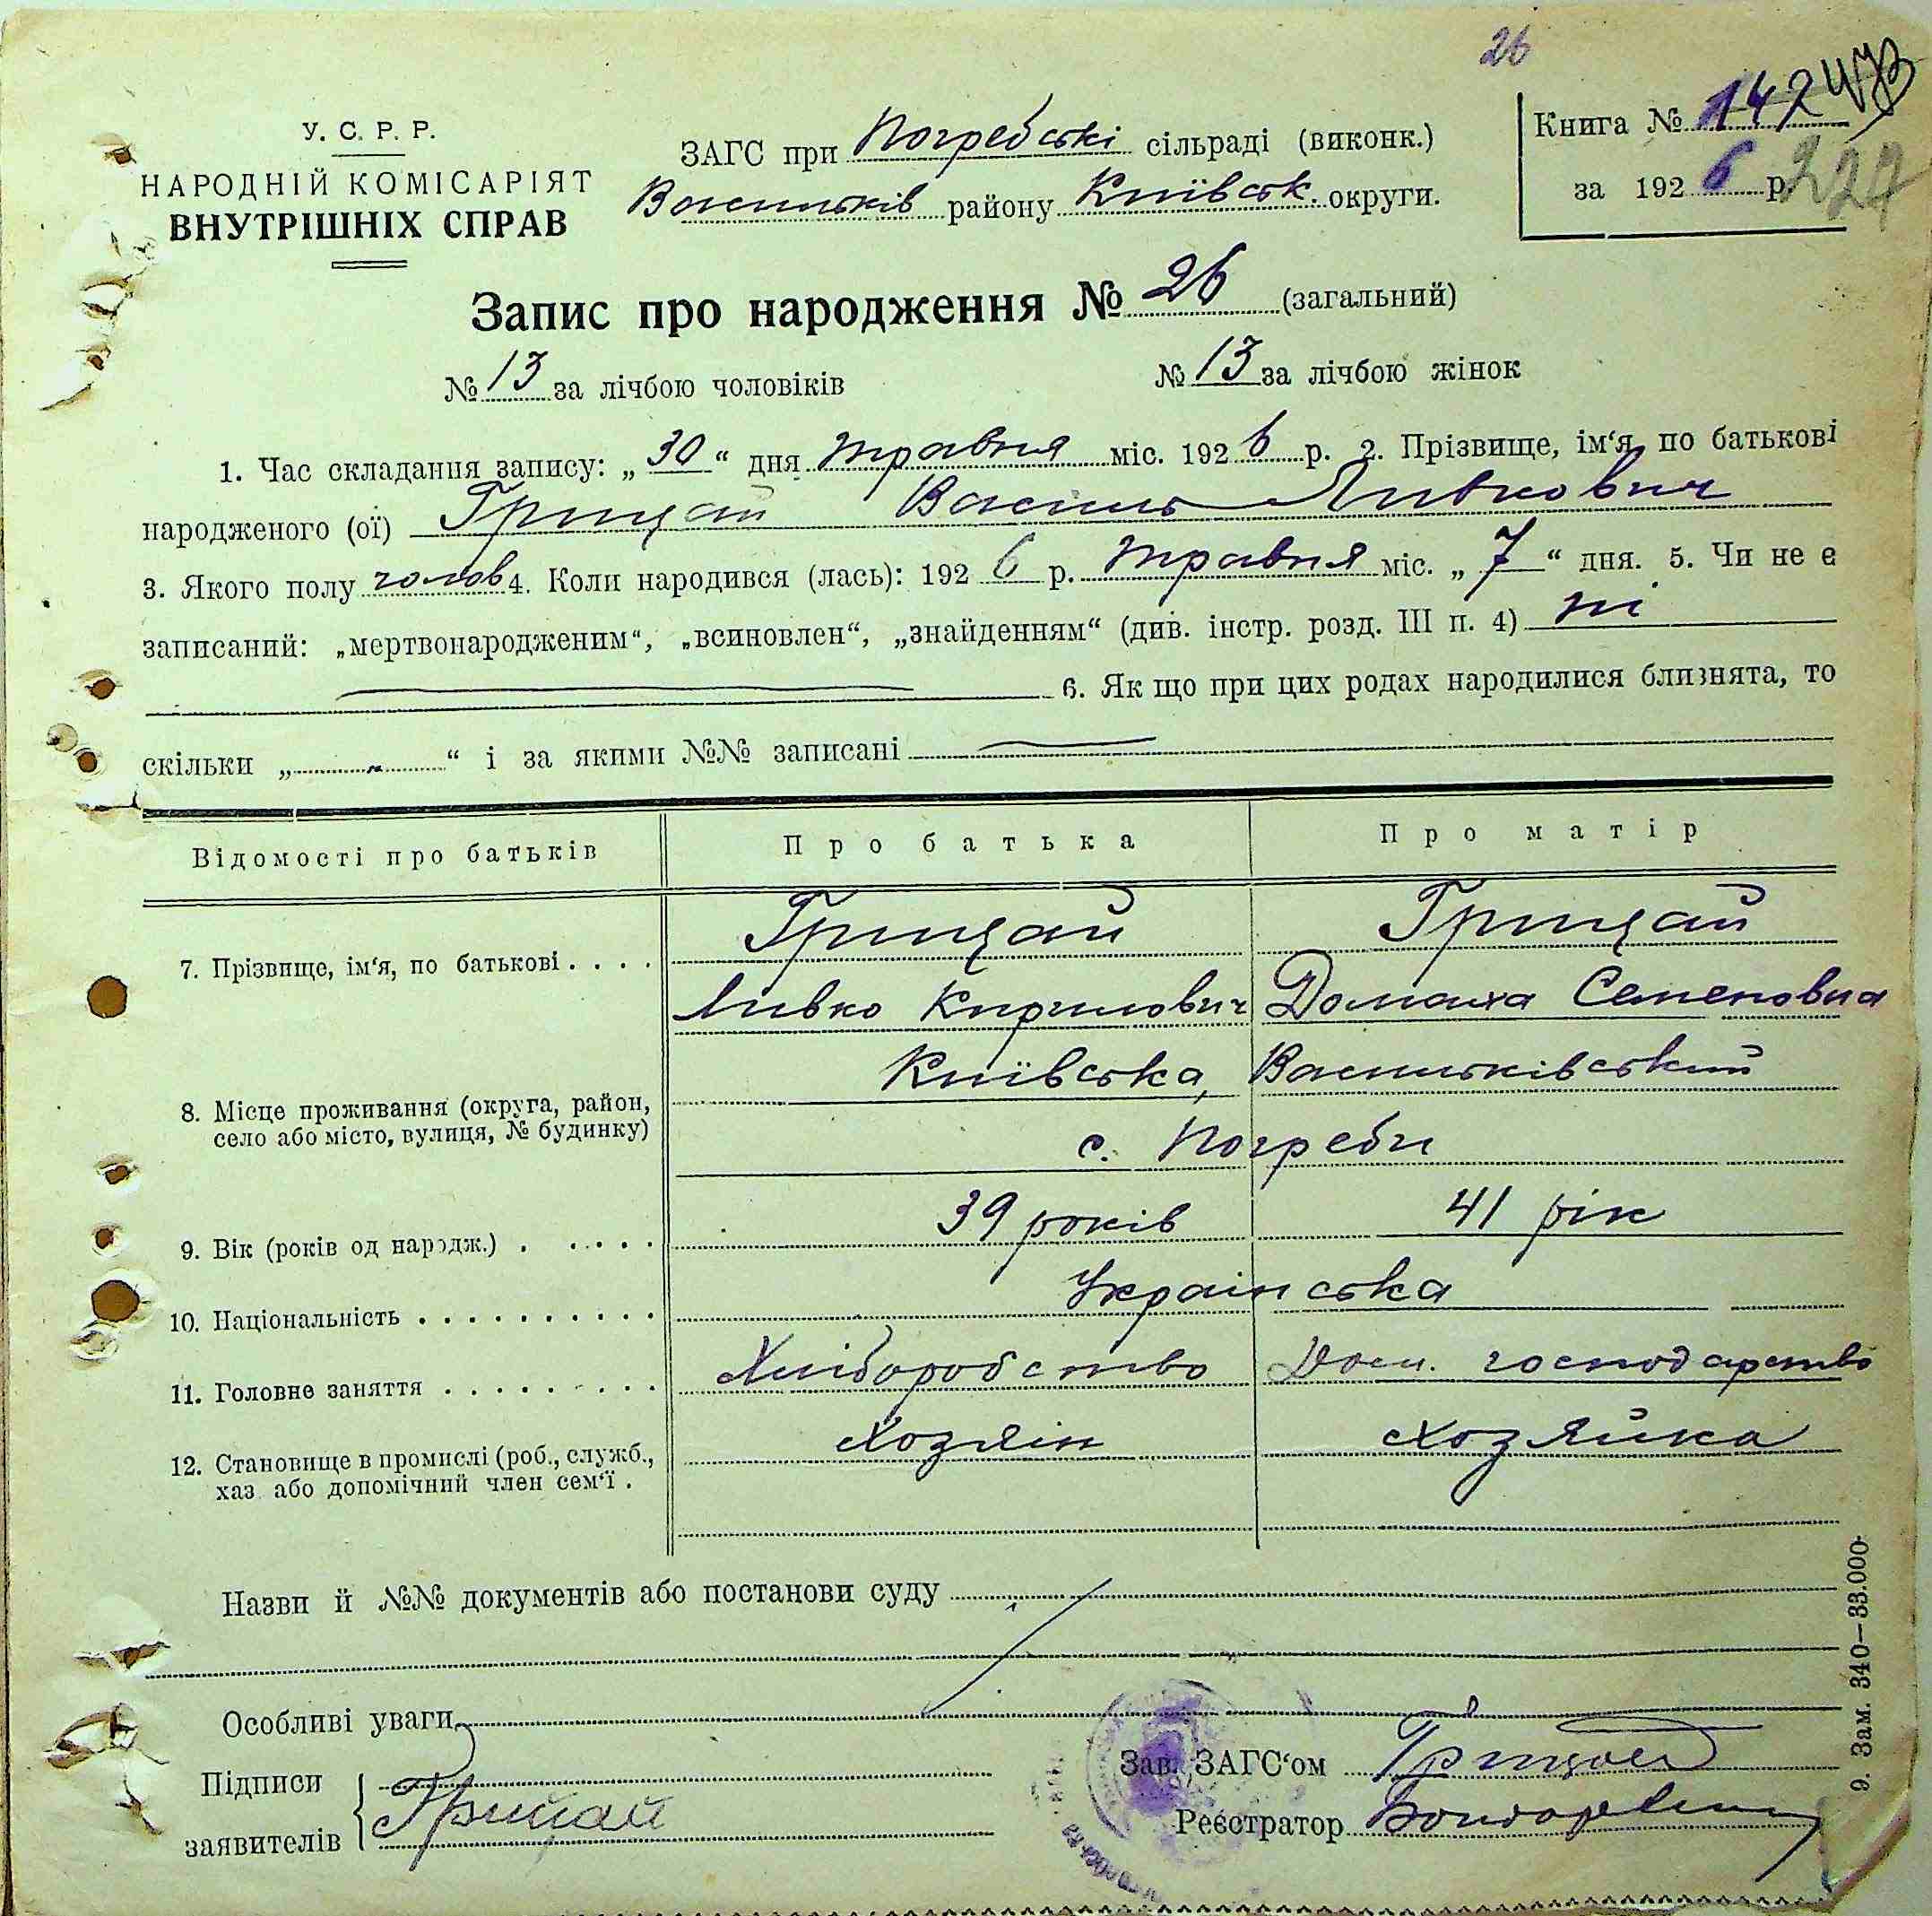 26
У. С. Р. Р.
НАРОДНІЙ КОМІСАРІЯТ
ВНУТРІШНІХ СПРАВ
ЗАГС при Погребські сільраді (виконк.)
Васильків району Київськ. округи.
Книга № 142 473
за 1926 р. 227
Запис про народження № 26 (загальний)
№ 13 за лічбою чоловіків № 13 за лічбою жінок
1. Час складання запису: „30“ дня травня міс. 1926 р. 2. Прізвище, ім‘я, по батькові
народженого (ої) Грицай Василь Ливкович
3. Якого полу чолов 4. Коли народився (лась): 1926 р. травня міс. „7“ дня. 5. Чи не є
записаний: „мертвонародженим“, „всиновлен“, „знайденням“ (див. інстр. розд. III п. 4) ні
6. Як що при цих родах народилися близнята, то
скільки „ “ і за якими №№ записані
Відомості про батьків Про батька Про матір
7. Прізвище, ім‘я, по батькові . . . . Грицай Грицай
Ливко Кирилович Домаха Семеновна
8. Місце проживання (округа, район, село або місто, вулиця, № будинку) Київська, Васильківський
с. Погреби
9. Вік (років од народж.) . . . . . 39 років 41 рік
10. Національність . . . . . . . . . . Українська
11. Головне заняття . . . . . . . . . Хліборобство Дом. господарство
12. Становище в промислі (роб., служб., хаз. або допомічний член сем‘ї . Хозяін Хозяйка
Назви й №№ документів або постанови суду
Особливі уваги
Підписи
заявителів Грицай
Зав. ЗАГС‘ом Грицай
Реєстратор
9. Зам. 340—33.000